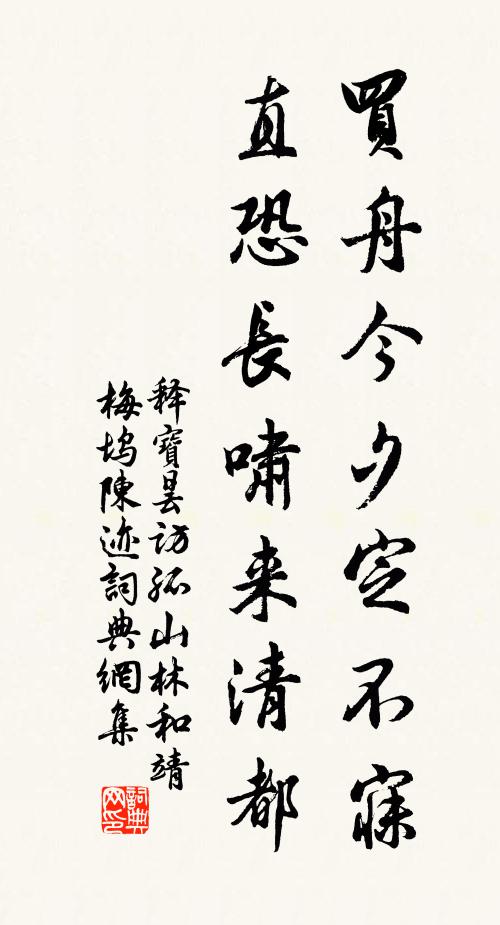 買舟今夕定不寐
直恐長嘯来清都
释寶曇訪孤山林和靖
梅塢陳迹詞典網集
詞典
网印